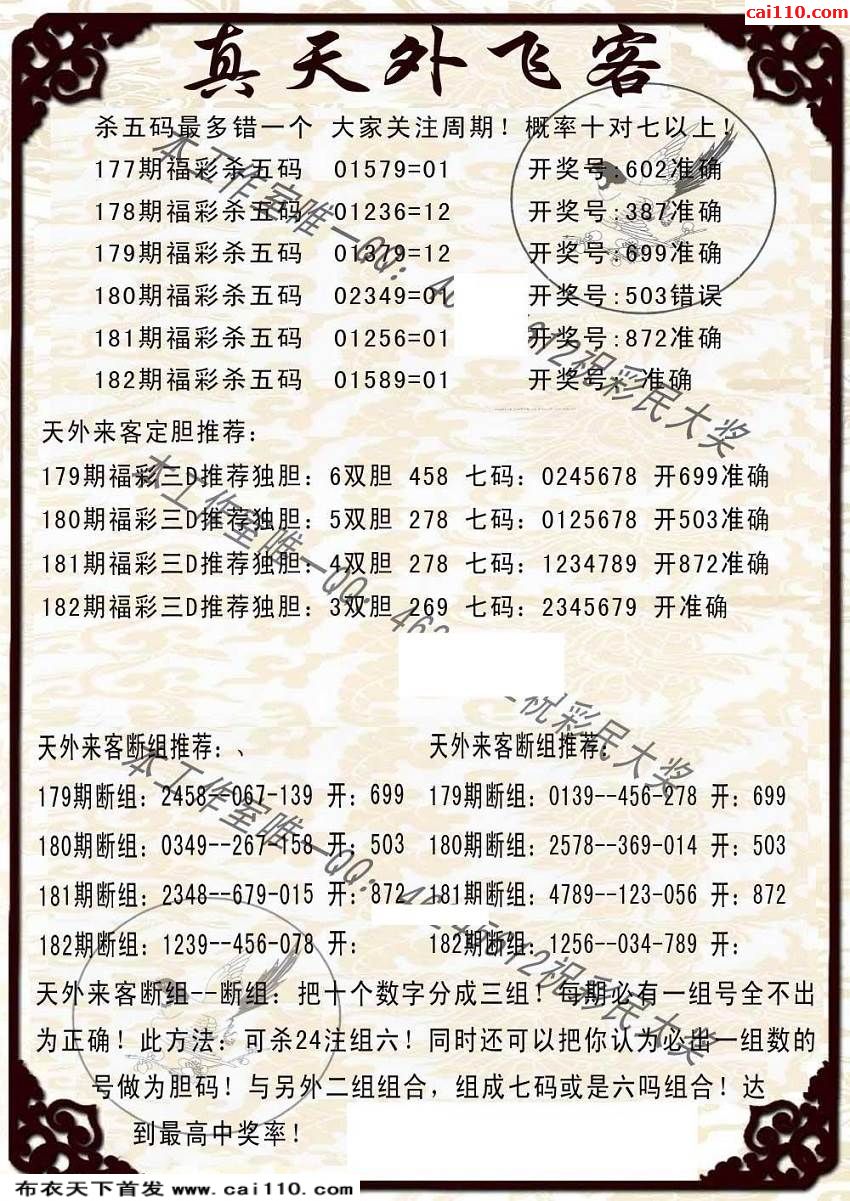 cai110.com
真天外飞客
杀五码最多错一个 大家关注周期！概率十对七以上！
177期福彩杀五码 01579=01 开奖号:602准确
178期福彩杀五码 01236=12 开奖号:387准确
179期福彩杀五码 01379=12 开奖号:699准确
180期福彩杀五码 02349=01 开奖号:503错误
181期福彩杀五码 01256=01 开奖号:872准确
182期福彩杀五码 01589=01 开奖号: 准确
天外来客定胆推荐：
179期福彩三D推荐独胆：6双胆 458 七码：0245678 开699准确
180期福彩三D推荐独胆：5双胆 278 七码：0125678 开503准确
181期福彩三D推荐独胆：4双胆 278 七码：1234789 开872准确
182期福彩三D推荐独胆：3双胆 269 七码：2345679 开准确
天外来客断组推荐：、 天外来客断组推荐：
179期断组：2458--067-139 开：699 179期断组：0139--456-278 开：699
180期断组：0349--267-158 开：503 180期断组：2578--369-014 开：503
181期断组：2348--679-015 开：872 181期断组：4789--123-056 开：872
182期断组：1239--456-078 开： 182期断组：1256--034-789 开：
天外来客断组--断组：把十个数字分成三组！每期必有一组号全不出
为正确！此方法：可杀24注组六！同时还可以把你认为必出一组数的
号做为胆码！与另外二组组合，组成七码或是六吗组合！达
到最高中奖率！
本工作室唯一QQ：
祝彩民大奖
本工作室唯一QQ：
祝彩民大奖
本工作室唯一QQ：
祝彩民大奖
布衣天下首发 www.cai110.com